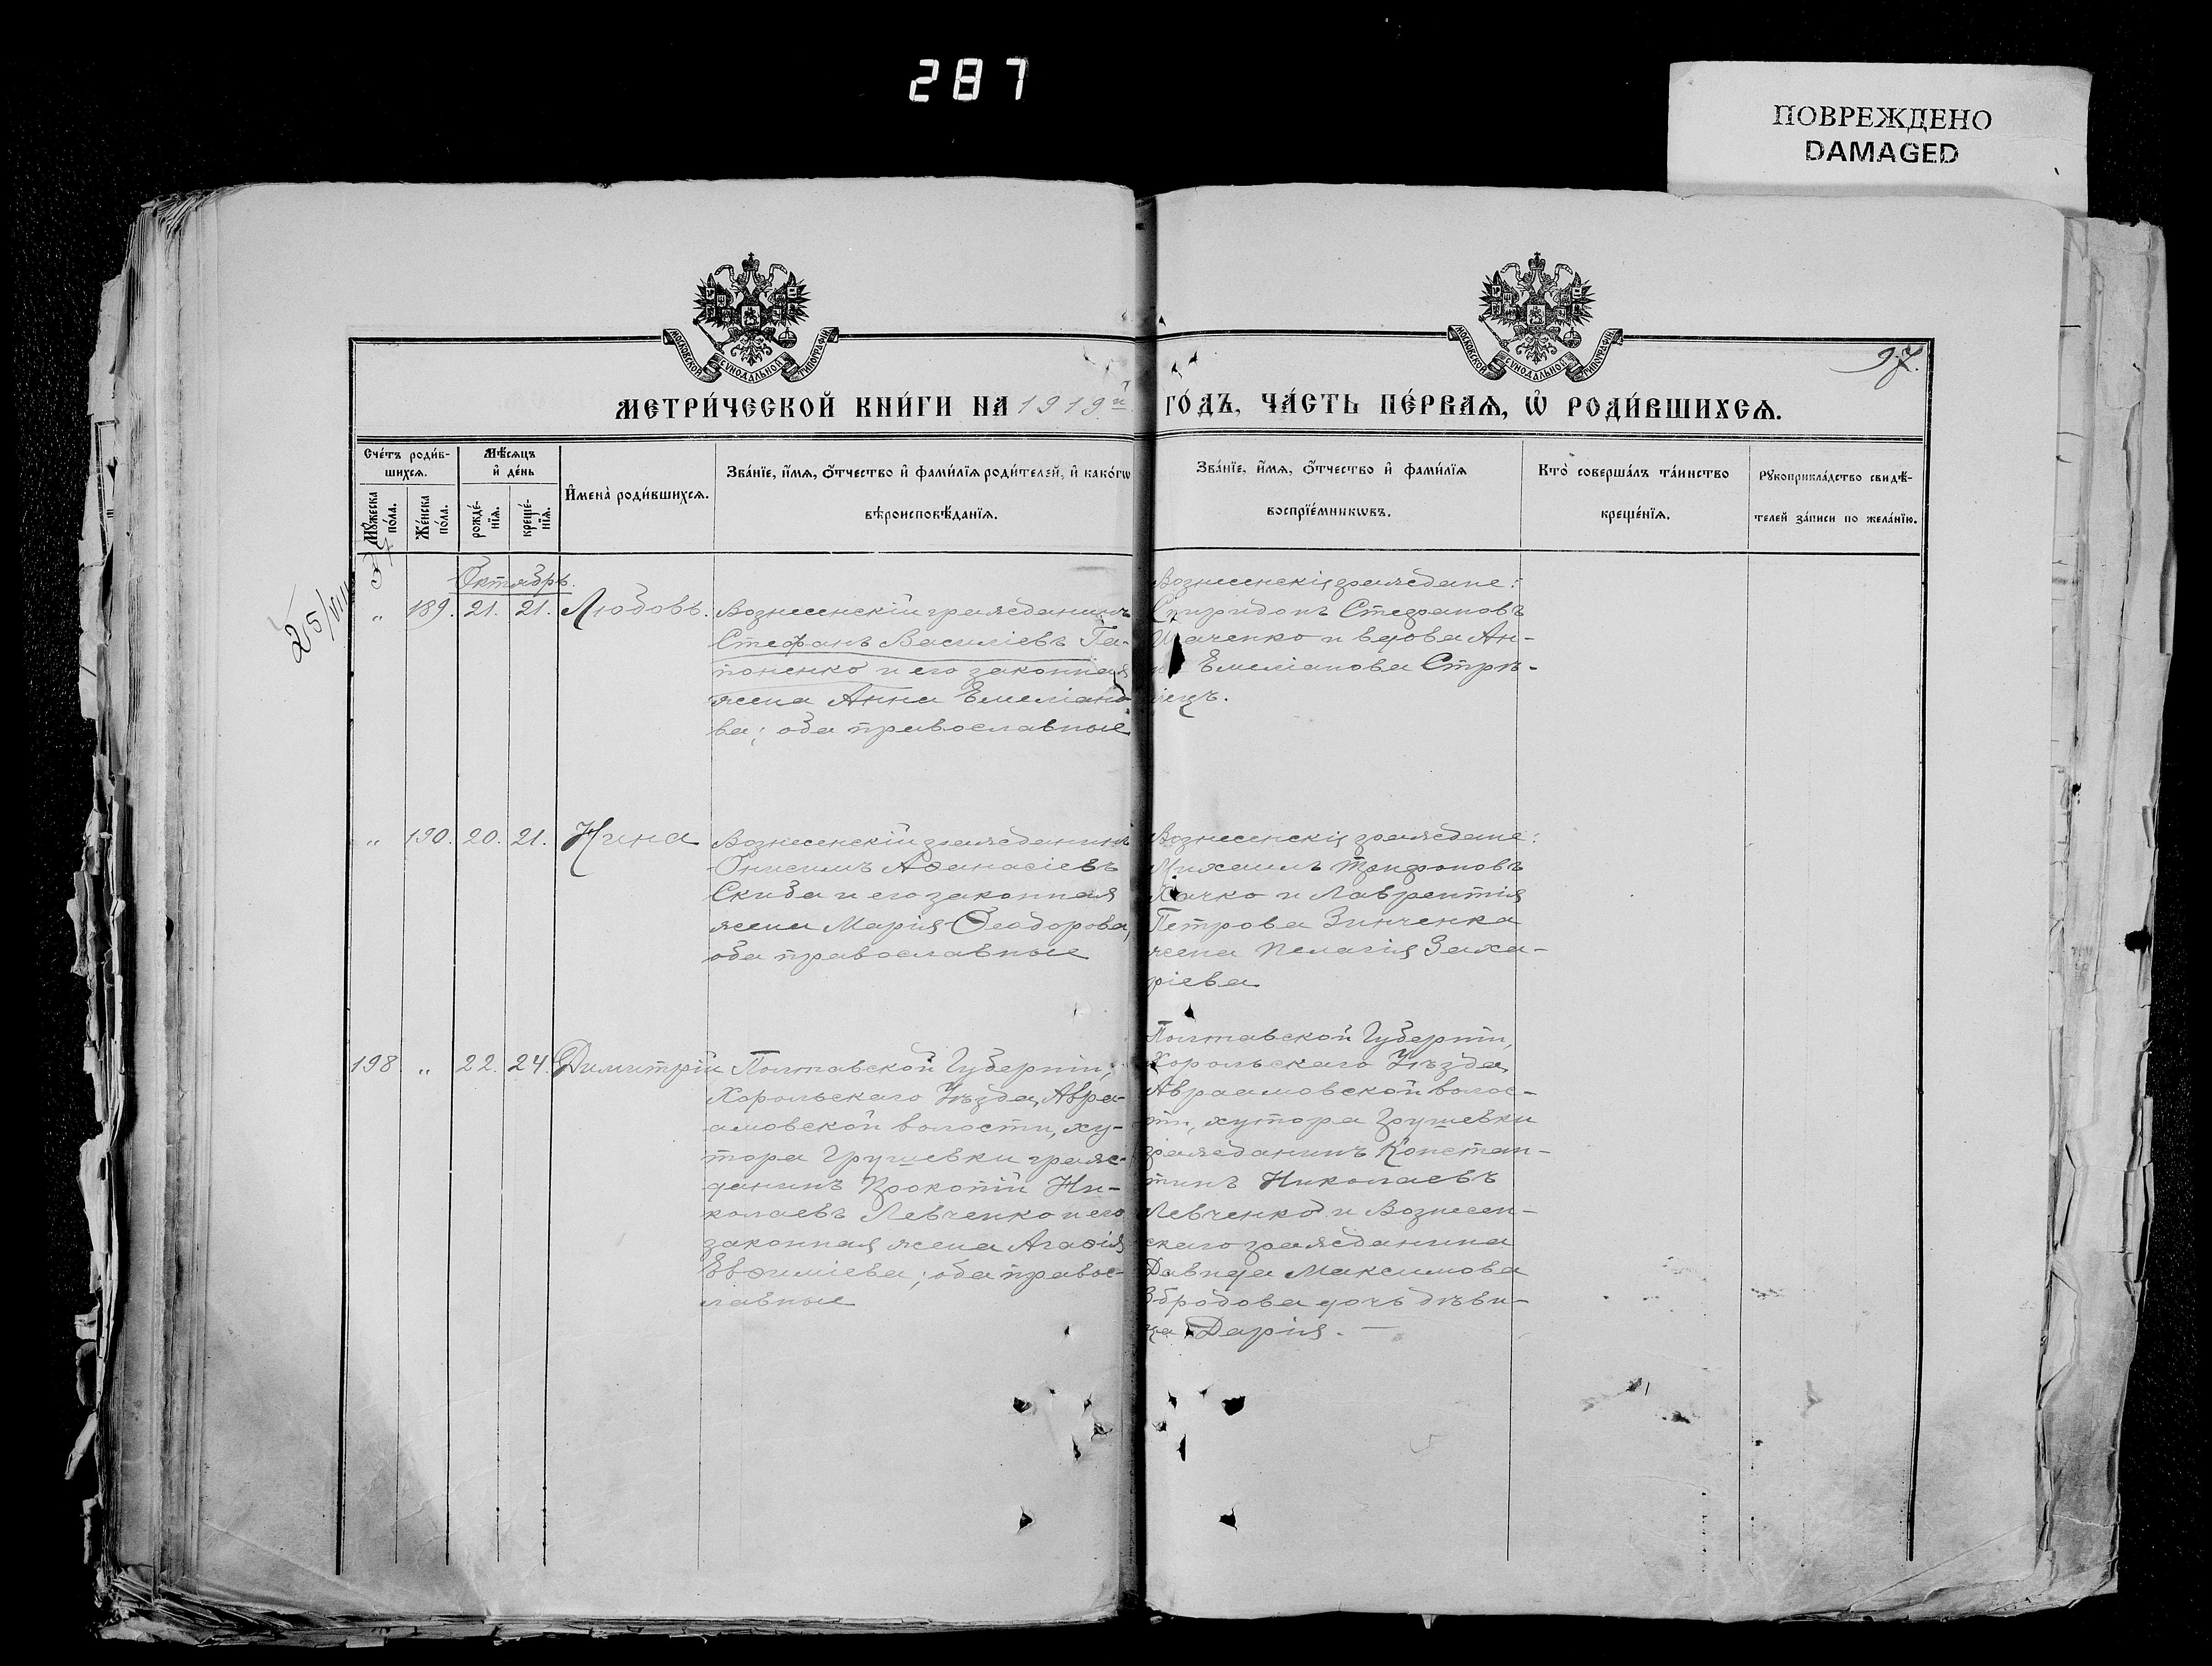 287
ПОВРЕЖДЕНО
DAMAGED
МОСКОВСКОЙ СѴНОДАЛЬНОЙ ТИПОГРАФІИ
МОСКОВСКОЙ СѴНОДАЛЬНОЙ ТИПОГРАФІИ
97.
МЕТРИ́ЧЕСКОЙ КНИ́ГИ НА 1919й ГО́ДЪ, ЧА́СТЬ ПЕ́РВАЯ, Ѡ҆ РОДИ́ВШИХСѦ.
Сче́тъ роди́в-
шихсѧ.
Мꙋ́жеска по́ла.
Же́нска по́ла.
Мѣ́сяцъ
и҆ де́нь
рожде́-
нїѧ.
креще́-
нїѧ.
И҆мена̀ роди́вшихсѧ.
Зва́нїе, и҆́мѧ, ѻ҆́тчество и҆ фами́лїѧ роди́телей, и҆ како́гѡ
вѣроисповѣ́данїѧ.
Зва́нїе, и҆́мѧ, ѻ҆́тчество и҆ фами́лїѧ
воспрїе́мникѡвъ.
Кто̀ соверша́лъ та́инство
креще́нїѧ.
Рꙋкоприкла́дство свидѣ́-
телей за́писи по жела́нїю.
25/VIII
Октябрь.
„ 189. 21. 21. Любовь.
Вознесенскій гражданинъ
Стефанъ Василіевъ Га-
поненко и его законная
жена Анна Емеліано
ва; оба православные
Вознесенскія граждане:
Спиридонъ Стефановъ
Ткаченко и вдова Ан-
на Емеліанова Стрѣ-
лецъ.
„ 190. 20. 21. Нина
Вознесенскій гражданинъ
Онисимъ Аѳанасіевъ
Скиба и его законная
жена Марія Ѳеодорова,
оба православные
Вознесенскія граждане:
Михаилъ Трифоновъ
Хачко и Лаврентія
Петрова Зинченка
жена Пелагія Заха-
ріева
198 „ 22. 24. Димитрій
Полтавской Губерніи,
Хорольскаго Уѣзда, Авра-
амовской волости, ху-
тора Грушевки граж-
данинъ Прокопій Ни-
колаевъ Левченко и его
законная жена Агаѳія
Евѳиміева; оба правос-
лавные
Полтавской Губерніи,
Хорольскаго Уѣзда,
Авраамовской волос-
ти, хутора Грушевки
гражданинъ Констан-
тинъ Николаевъ
Левченко и Вознесен-
скаго гражданина
Давида Максимова
Збродова дочь дѣви-
ца Дарія. —